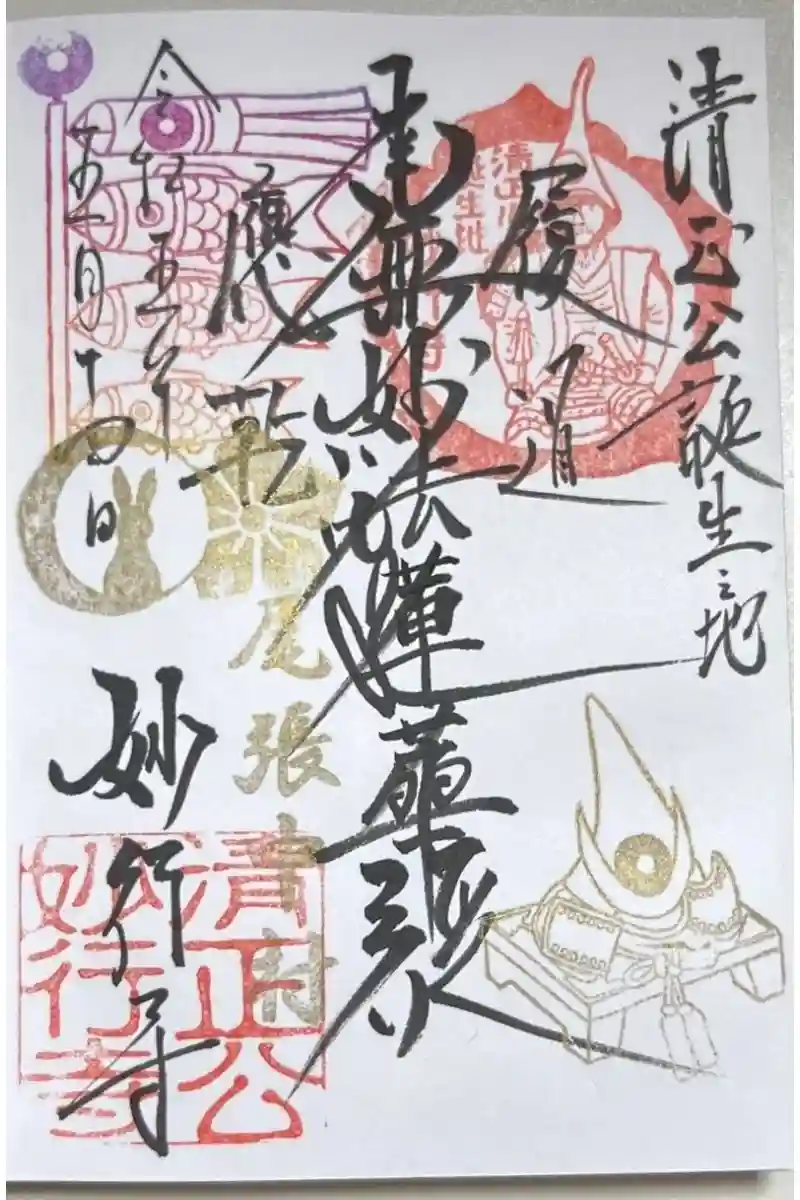 清正公誕生之地
履道
南無妙法蓮華経
應乾
令和五年
五月十四日
尾張中村
妙行寺
清正公
妙行寺
清正公
誕生地